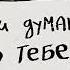 и думаю
о тебе